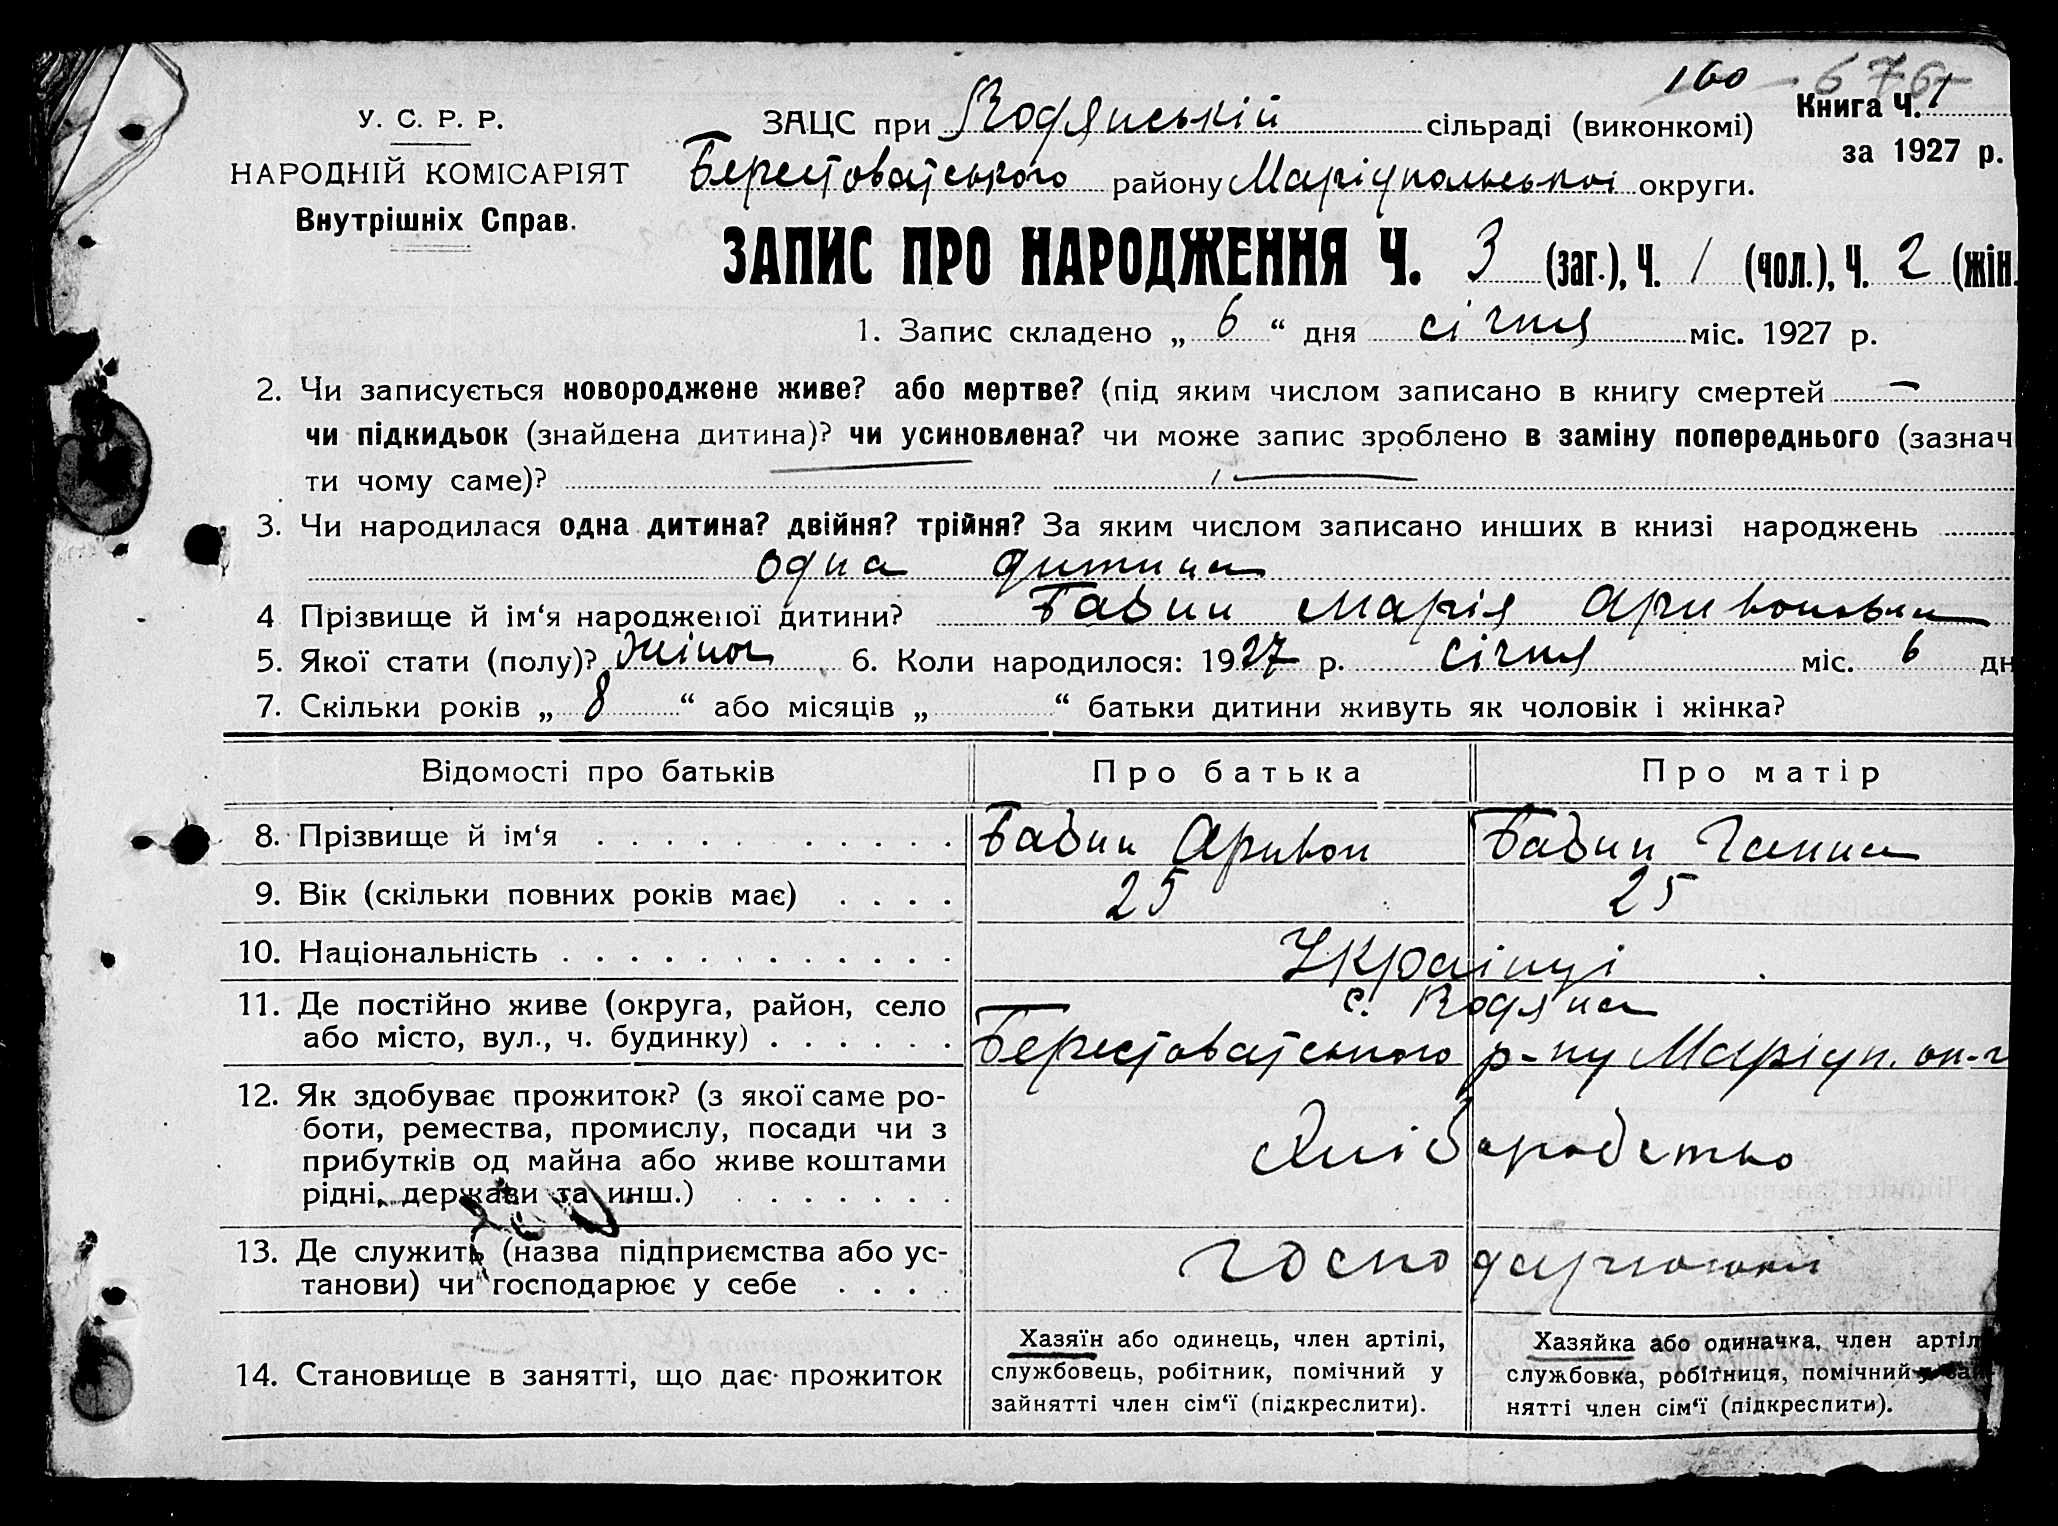 160 – 676
У. С. Р. Р.
НАРОДНІЙ КОМІСАРІЯТ
Внутрішніх Справ.
ЗАЦС при Водянській сільраді (виконкомі)
Книга Ч. 1
за 1927 р.
Берестоватського району Маріупольської округи.
ЗАПИС ПРО НАРОДЖЕННЯ Ч. 3 (заг.), Ч. 1 (чол.), Ч. 2 (жін.
1. Запис складено „ 6 “ дня січня міс. 1927 р.
2. Чи записується новороджене живе? або мертве? (під яким числом записано в книгу смертей —
чи підкидьок (знайдена дитина)? чи усиновлена? чи може запис зроблено в заміну попереднього (зазнач
ти чому саме)?
3. Чи народилася одна дитина? двійня? трійня? За яким числом записано инших в книзі народжень
одна дитина
4 Прізвище й ім‘я народженої дитини? Бабич Марія Аривоновна
5. Якої стати (полу)? жіноч 6. Коли народилося: 1927 р. січня міс. 6 дн
7. Скільки років „ 8 “ або місяців „ “ батьки дитини живуть як чоловік і жінка?
Відомості про батьків Про батька Про матір
8. Прізвище й ім‘я Бабич Аривон Бабич Ганна
9. Вік (скільки повних років має) 25 25
10. Національність Українці
11. Де постійно живе (округа, район, село с. Водяна
або місто, вул., ч. будинку) Берестоватського р-ну Маріуп. ок-г
12. Як здобуває прожиток? (з якої саме ро-
боти, ремества, промислу, посади чи з
прибутків од майна або живе коштами
рідні, держави та инш.)
хліборобство
13. Де служить (назва підприємства або ус-
танови) чи господарює у себе
14. Становище в занятті, що дає прожиток
Хазяїн або одинець, член артілі,
службовець, робітник, помічний у
зайнятті член сім‘ї (підкреслити).
Хазяйка або одиначка, член артіл
службовка, робітниця, помічний у зай-
нятті член сім‘ї (підкреслити).